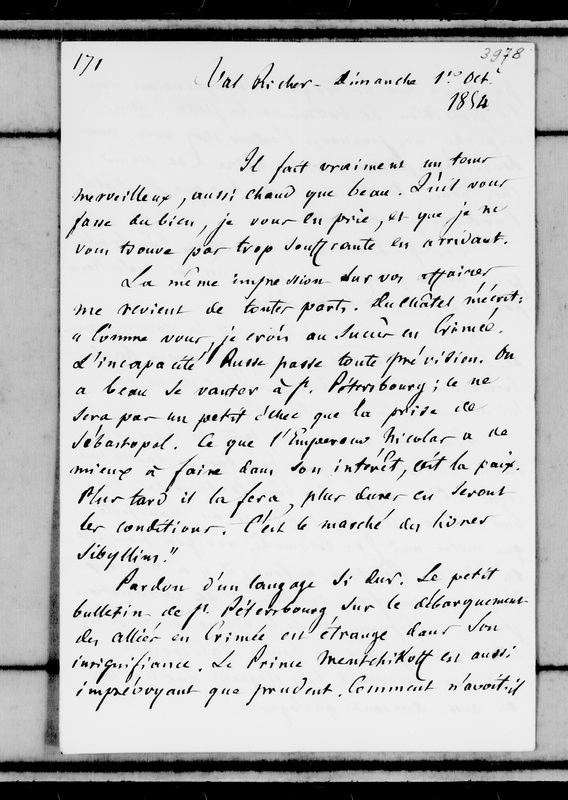 171
3978
Val Richer - Dimanche 1er Oct.
1854
Il fait vraiment un tems
merveilleux, aussi chaud que beau. Qu'il vous
fasse du bien, je vous en prie, et que je ne
vous trouve pas trop souffrante en arrivant.
La même impression sur vos affaires
me revient de toutes parts. Duchâtel m'écrit :
" Comme vous, je crois au succès en Crimée.
L'incapacité Russe passe toute prévision. On
a beau se vanter à St. Pétersbourg ; ce ne
sera pas un petit échec que la prise de
Sébastopol. Ce que l'Empereur Nicolas a de
mieux à faire dans son intérêt, c'est la paix.
Plus tard il la fera, plus dures en seront
les conditions. C'est le marché des livres
Sibyllins."
Pardon d'un langage si dur. Le petit
bulletin de St. Pétersbourg sur le débarquement
des alliés en Crimée est étrange dans son
insignifiance. Le Prince Mentchikoff est aussi
imprévoyant que prudent. Comment n'avoit-il